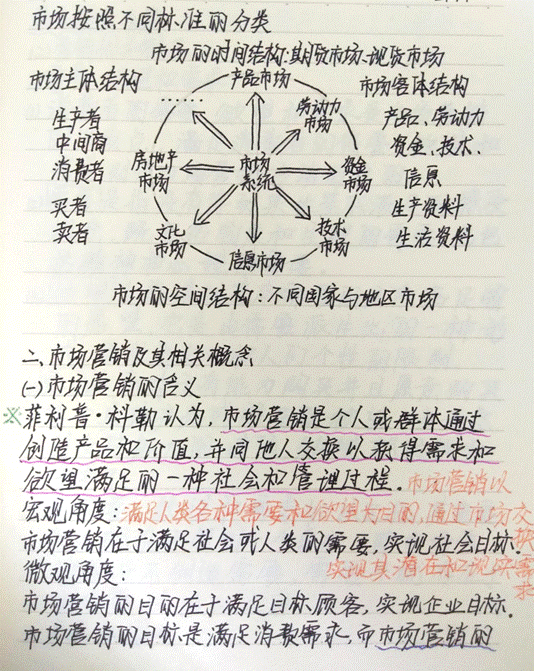 市场按照不同标准的分类
市场的时间结构:期货市场、现货市场
市场主体结构
产品市场
市场客体结构
……
劳动力
市场
生产者
中间商
消费者
买者
卖者
房地产
市场
市场
系统
资金
市场
产品、劳动力
资金、技术、
信息
生产资料
生活资料
文化
市场
信息市场
技术
市场
市场的空间结构:不同国家与地区市场
二、市场营销及其相关概念
(一)市场营销的含义
※菲利普·科勒认为,市场营销是个人或群体通过
创造产品和价值,并同他人交换以获得需求和
欲望满足的一种社会和管理过程.
市场营销以
宏观角度:
满足人类各种需要和欲望为目的,通过市场交换
市场营销在于满足社会或人类的需要,实现社会目标.
实现其潜在和现实需求
微观角度:
市场营销的目的在于满足目标顾客,实现企业目标.
市场营销的目标是满足消费需求,而市场营销的